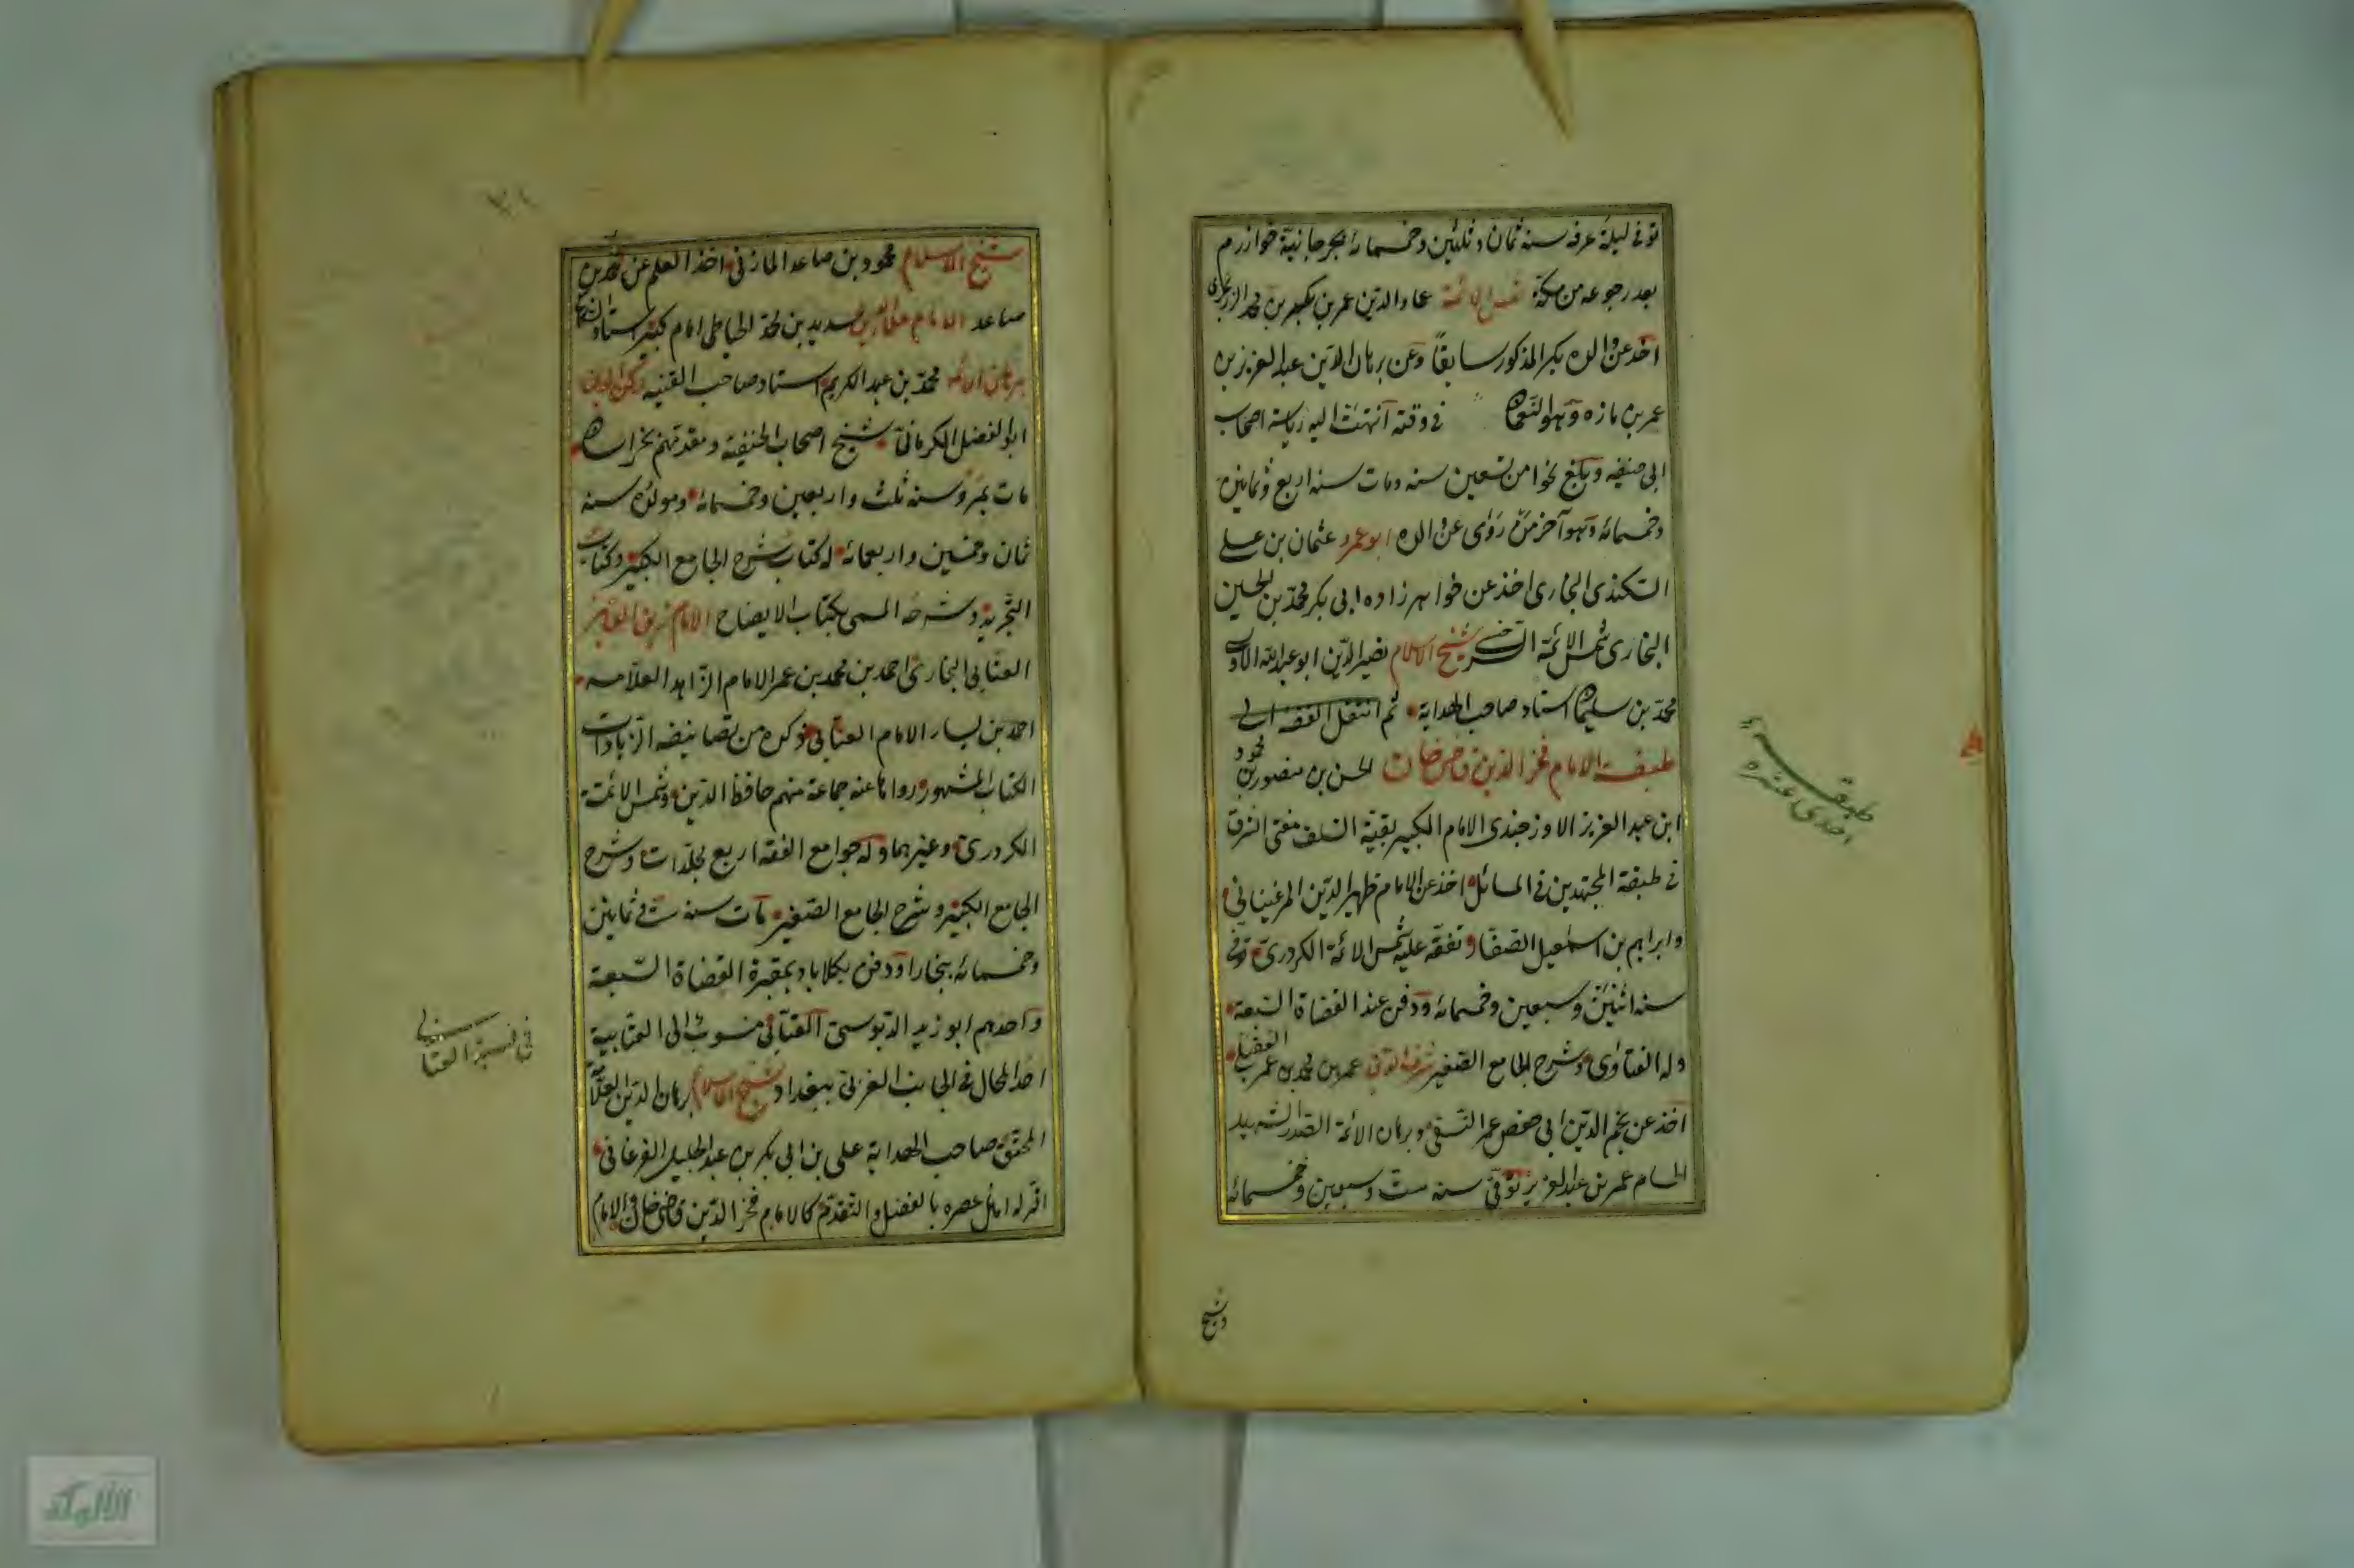 توفى ليلة عرفة سنة ثمان وثلثين وخمسمائة بجرجانية خوارزم
بعد رجوعه من مكة شمس الائمة عماد الدين عمر بن بكر بن محمد الزرنجرى
اخذ عن والده بكر المذكور سابقا وعن برهان الدين عبد العزيز بن
عمر بن مازه وهو النعمان فى وقته انتهت اليه رياسة اصحاب
ابى حنيفه وبلغ نحوا من تسعين سنه ومات سنه اربع وثمانين
وخمسمائه وهو آخر من روى عن والده ابو عمرو عثمان بن على
البيكندى البخارى اخذ عن خواهر زاده ابى بكر محمد بن الحسين
البخارى شمس الائمة السرخسى شيخ الاسلام نصير الدين ابو عبد الله
محمد بن سليمان استاد صاحب الهداية ثم انتقل الفقه الى
طبقة الامام فخر الدين قاضى خان الحسن بن منصور بن محمود
ابن عبد العزيز الاوزجندى الامام الكبير بقية السلف مفتى الشرق
فى طبقة المجتهدين فى المسائل اخذ عن الامام ظهير الدين المرغينانى
وابراهيم بن اسمعيل الصفار وتفقه عليه شمس الائمة الكردرى توفى
سنه اثنين وسبعين وخمسمائه ودفن عند القضاة السبعة
وله الفتاوى وشرح الجامع الصغير شرف الدين عمر بن محمد بن عمر العقيلى
اخذ عن نجم الدين ابى حفص عمر النسفى وبرهان الائمة الصدر الشهيد
الحسام عمر بن عبد العزيز توفى سنه ست وسبعين وخمسمائه
وشيخ
طبقه
احدى عشره
شيخ الاسلام محمود بن صاعد المارفى اخذ العلم عن محمد بن
صاعد الامام علاء الدين سديد بن محمد الخياطى امام كبير استاد الشيخ
برهان الائمة محمد بن عبد الكريم استاد صاحب القنيه ركن الدين
ابو الفضل الكرمانى شيخ اصحاب الحنيفة ومقدمهم بخراسان
مات بمرو سنه ثلث واربعين وخمسمائه ومولده سنه
ثمان وخمسين واربعمائه له كتاب شرح الجامع الكبير وكتاب
التجريد وشرحه المسمى بكتاب الايضاح الامام زين الدين
العتابى البخارى احمد بن محمد بن عمر الامام الزاهد العلامه
احمد بن يسار الامام العتابى ذكره من تصانيفه الزيادات
الكتاب المشهور رواها عنه جماعة منهم حافظ الدين وشمس الائمة
الكردرى وغيرهما وله جوامع الفقه اربع مجلدات وشرح
الجامع الكبير وشرح الجامع الصغير مات سنة ست وثمانين
وخمسمائه ببخارا ودفن بكلاباد بمقبرة القضاة السبعة
واحدهم ابو زيد الدبوسى العتابى منسوب الى العتابية
احد المحال فى الجانب الغربى ببغداد شيخ الاسلام برهان الدين العلامة
المحقق صاحب الهداية على بن ابى بكر بن عبد الجليل الفرغانى
اقر له اهل عصره بالفضل والتقدم كالامام فخر الدين قاضى خان والامام
فى نسبة العتابى